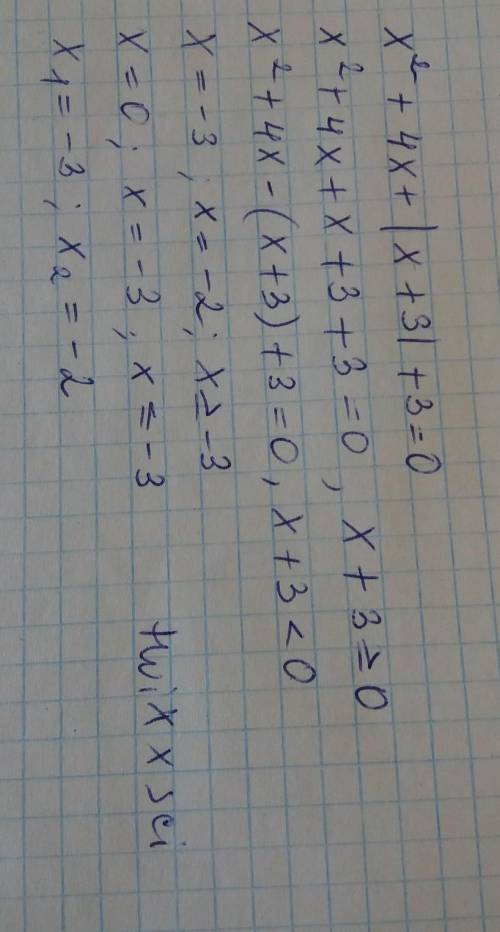 x² + 4x + |x + 3| + 3 = 0
x² + 4x + x + 3 + 3 = 0, x + 3 ≥ 0
x² + 4x - (x + 3) + 3 = 0, x + 3 < 0
x = -3; x = -2; x ≥ -3
x = 0; x = -3; x ≤ -3
x₁ = -3; x₂ = -2